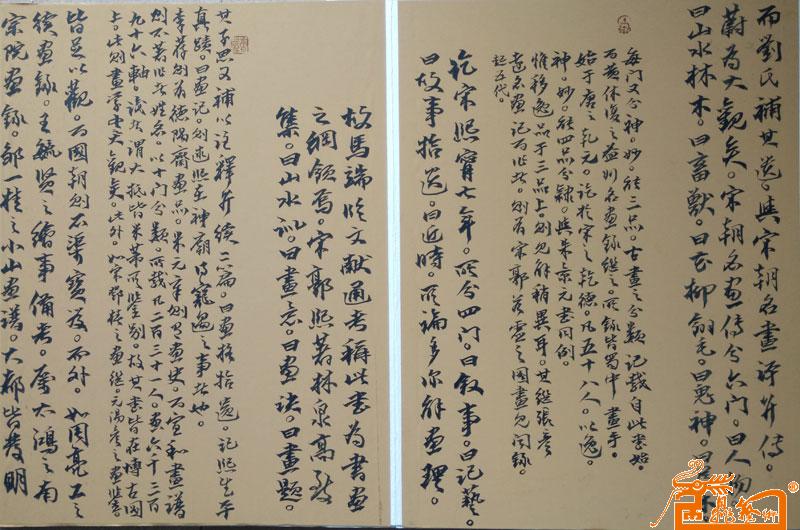 而劉氏補其遺。與宋朝名畫評并傳。
蔚為大觀矣。宋朝名畫傳分六門。曰人物。
曰山水林木。曰畜獸。曰花柳翎毛。曰鬼神。曰屋木。
每門又分神。妙。能三品。古畫之分類記載自此書始。
而黃休復之益州名畫錄繼之。所錄皆蜀中畫手。
始于唐之乾元。訖於宋之乾德。凡五十八人。以逸。
神。妙。能四品分隸。與朱景元書同例。
惟移逸品于三品上。則見解稍異耳。其繼張彥
遠名畫記而作者。則為宋郭若虛之圖畫見聞錄。
起五代。
訖宋熙寧七年。所分四門。曰敘事。曰記藝。
曰故事拾遺。曰近時。所論多深解畫理。
故馬端臨文獻通考稱此書為書畫
之綱領焉。宋郭熙著林泉高致
集。曰山水訓。曰畫意。曰畫訣。曰畫題。
其子思又補以注釋并續二篇。曰畫格拾遺。記熙生平
真蹟。曰畫記。則述熙在神廟時寵遇之事者也。
李薦則有德隅齋畫品。米元章則有畫史。而宣和畫譜
則不著作者姓名。以十門分類。所載凡二百三十一人。畫六千三百
九十六軸。識者謂大抵皆米芾所鑒別。故其書皆在博古圖
上。此則畫學之大觀矣。此外。如宋鄧椿之畫繼。元湯垕之畫鑒
皆足以觀。而國朝則不淺寶爻。而外。如周亮工之
續畫錄。王毓賢之繪事備考。厲太鴻之南
宋院畫錄。鄒一桂之小山畫譜。大都皆發明